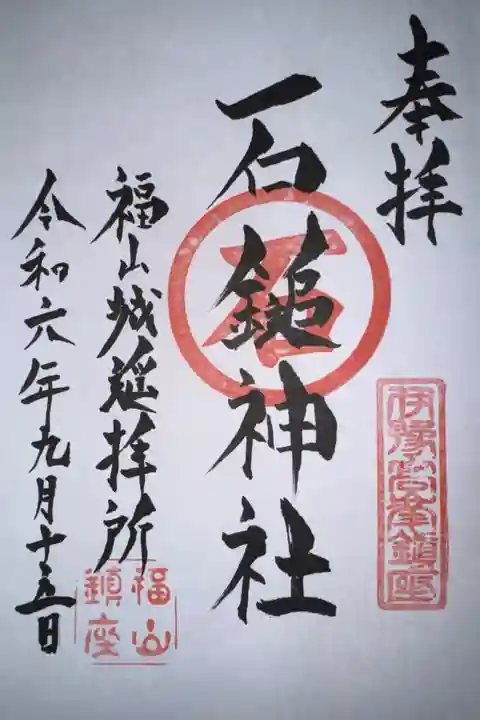 奉拝
伊豫石鎚鎮座
石
石鎚神社
福山城遥拝所
福山鎮座
令和六年九月十五日